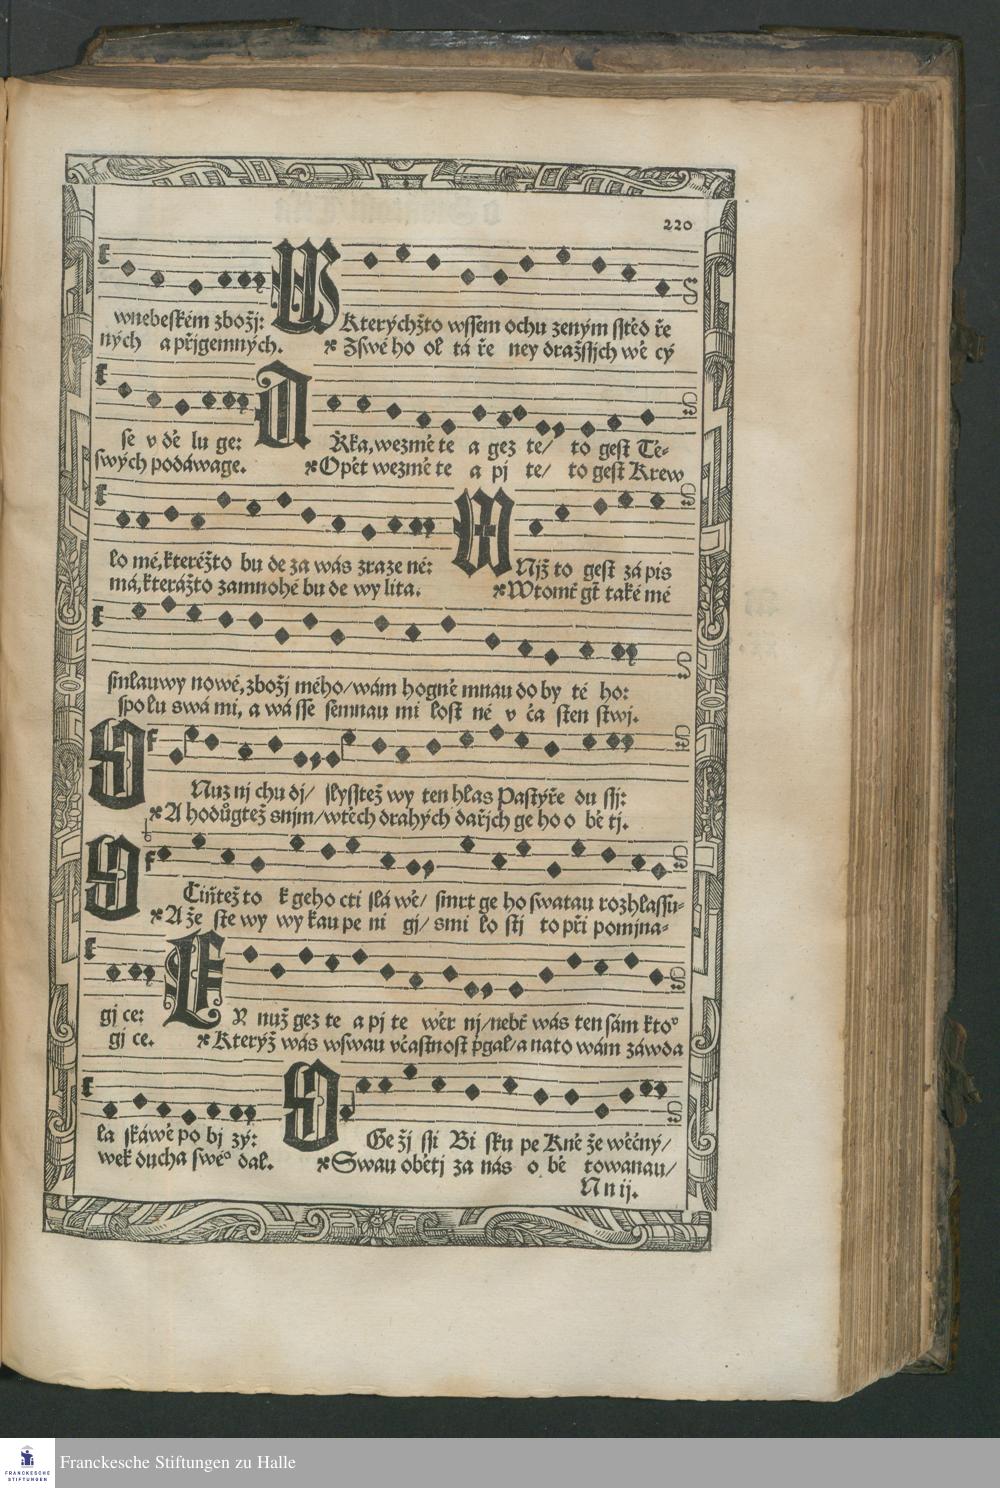 220
wnebeském zbožj: W Kterýchžto wssem ochu zeným sstěd ře
ných a přjgemných. Zswé ho ol tá ře ney dražssjch wě cý
se v dě lu ge: Ařka, wezmě te a gez te/ to gest Tě-
swých podáwage. Opět wezmě te a pj te/ to gest Krew
lo mé, kteréžto bu de za wás zraze né: W Njž to gest zá pis
má, kterážto zamnohé bu de wy lita. Wtomť gt také mé
smlauwy nowé, zbožj mého/ wám hogně mnau do by té ho:
spolu swá mi, a wá sse semnau mi lost né v ča sten stwj.
Nuz nj chu dj/ slysstež wy ten hlas Pastýře du ssj:
A hodůgtež snjm/ wtěch drahých dařjch ge ho o bě tj.
Čiňtež to k geho cti slá wě/ smrt ge ho swatau rozhlassu-
A že ste wy wy kau pe ni gj/ smi lo stj to při pomjna-
gj ce: Ey nuž gez te a pj te wěr nj/ nebť wás ten sám kto°
gj ce. Kterýž wás wswau včastnost pgal/ a nato wám záwda
la skáwě po bj zý: O Ge žj ssi Bi sku pe Kně že wěčný/
wek ducha swé° dal. Swau obětj za nás o bě towanau/
N n ij.
Franckesche Stiftungen zu Halle
FRANCKESCHE
STIFTUNGEN